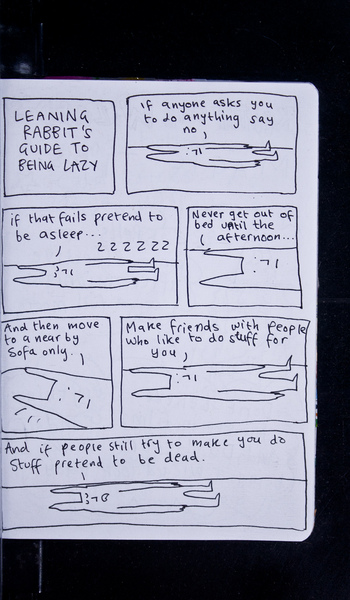 LEANING
RABBIT'S
GUIDE TO
BEING LAZY
if anyone asks you
to do anything say
no,
if that fails pretend to
be asleep...
ZZZZZZ
Never get out of
bed until the
afternoon...
And then move
to a near by
Sofa only.
Make friends with people
who like to do stuff for
you,
And if people still try to make you do
Stuff pretend to be dead.